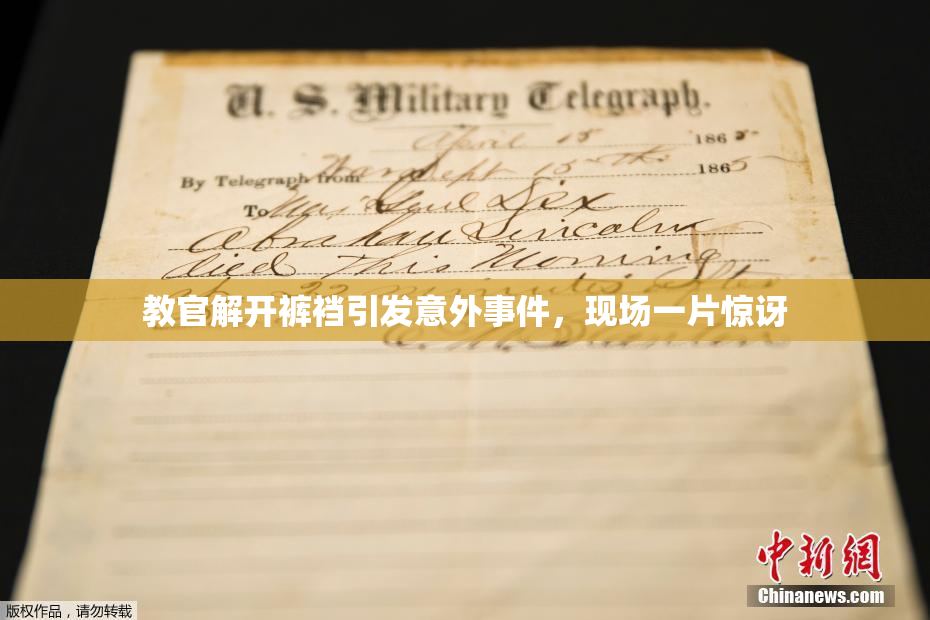 U. S. Military Telegraph.
April 15 1865.
By Telegraph from War Dept 15th 1865
To Maj Genl Dix
Abraham Lincoln
died This Morning
at 22 minutes after
教官解开裤裆引发意外事件，现场一片惊讶
E. M. Stanton
中新网
Chinanews.com
版权作品，请勿转载